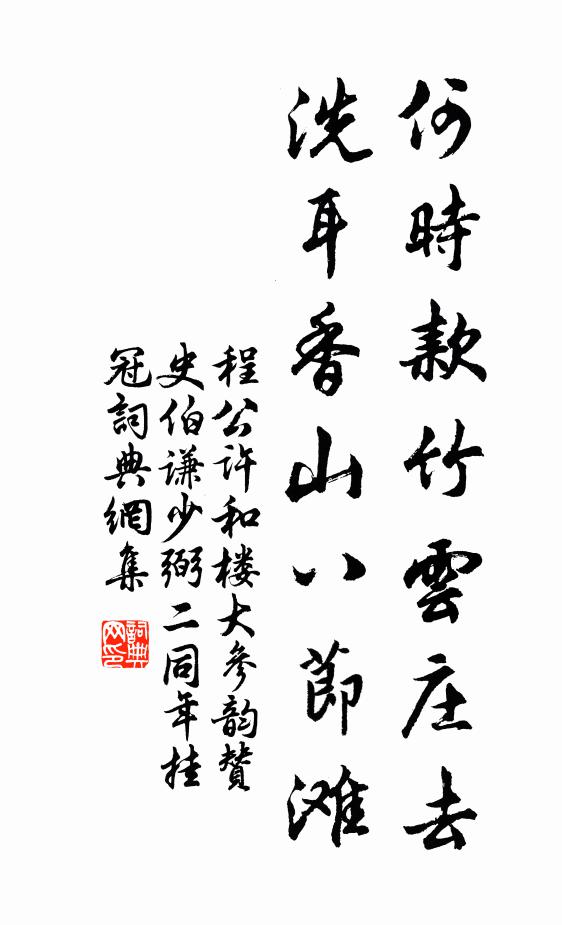 何時款竹雲庄去
洗耳香山八節滩
程公許和楼大參韵贊
史伯谦少弼二同年挂
冠詞典網集
詞典
网印